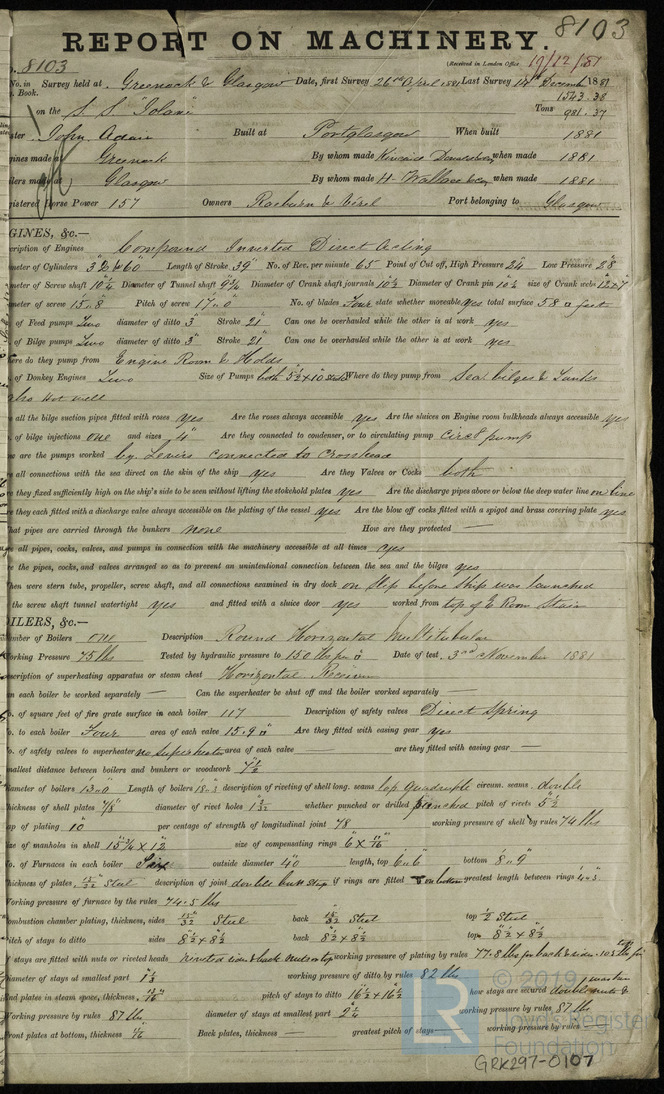 8103
REPORT ON MACHINERY.
8103 (Received in London Office 19/12/81
No. in Survey held at Greenock & Glasgow Date, first Survey 26th April 1881 Last Survey 14th December 1881
Book. 1543.38
on the S. S. Iolani Tons 981.37
John Adam Built at Portglasgow When built 1881
Engines made at Greenock By whom made Kincaid Donald & Co when made 1881
made at Glasgow By whom made H. Wallace & Co when made 1881
Horse Power 157 Owners Raeburn & Verel Port belonging to Glasgow
GINES, &c.—
cription of Engines Compound Inverted Direct Acting
meter of Cylinders 32" & 60" Length of Stroke 39" No. of Rev. per minute 65 Point of Cut off, High Pressure 24" Low Pressure 28"
meter of Screw shaft 10¼ Diameter of Tunnel shaft 9¾ Diameter of Crank shaft journals 10½ Diameter of Crank pin 10½ size of Crank webs
meter of screw 15.8 Pitch of screw 17.0 No. of blades Four state whether moveable yes total surface 58 feet
of Feed pumps Two diameter of ditto 3" Stroke 21" Can one be overhauled while the other is at work yes
of Bilge pumps Two diameter of ditto 3" Stroke 21" Can one be overhauled while the other is at work yes
ere do they pump from Engine Room & Holds
of Donkey Engines Two Size of Pumps both 5½ x 10 stroke Where do they pump from Sea bilges & Tanks
also Hot well
all the bilge suction pipes fitted with roses yes Are the roses always accessible yes Are the sluices on Engine room bulkheads always accessible yes
of bilge injections one and sizes 4" Are they connected to condenser, or to circulating pump circl pump
are the pumps worked by Levers connected to Crosshead
all connections with the sea direct on the skin of the ship yes Are they Valves or Cocks both
re they fixed sufficiently high on the ship's side to be seen without lifting the stokehold plates yes Are the discharge pipes above or below the deep water line on line
re they each fitted with a discharge valve always accessible on the plating of the vessel yes Are the blow off cocks fitted with a spigot and brass covering plate yes
hat pipes are carried through the bunkers none How are they protected —
all pipes, cocks, valves, and pumps in connection with the machinery accessible at all times yes
re the pipes, cocks, and valves arranged so as to prevent an unintentional connection between the sea and the bilges yes
hen were stern tube, propeller, screw shaft, and all connections examined in dry dock on slip before ship was launched
the screw shaft tunnel watertight yes and fitted with a sluice door yes worked from top of E Room Stair
ILERS, &c.—
umber of Boilers one Description Round Horizontal Multitubular
orking Pressure 75 lbs Tested by hydraulic pressure to 150 lbs Date of test 3rd November 1881
escription of superheating apparatus or steam chest Horizontal Receiver
n each boiler be worked separately — Can the superheater be shut off and the boiler worked separately —
o. of square feet of fire grate surface in each boiler 117 Description of safety valves Direct Spring
o. to each boiler Four area of each valve 15.9 Are they fitted with easing gear yes
o. of safety valves to superheater no superheater area of each valve — are they fitted with easing gear —
mallest distance between boilers and bunkers or woodwork
iameter of boilers 13.0 Length of boilers 18.3 description of riveting of shell long. seams lap quadruple circum. seams double
hickness of shell plates 7/8" diameter of rivet holes whether punched or drilled punched pitch of rivets 5½
ap of plating 10" per centage of strength of longitudinal joint 78 working pressure of shell by rules 74 lbs
ize of manholes in shell 15¾ x 12 size of compensating rings
o. of Furnaces in each boiler Six outside diameter 40" length, top 6.6 bottom 8.9
hickness of plates 15/32 Steel description of joint double butt strap if rings are fitted on bottom greatest length between rings
orking pressure of furnace by the rules 74.5 lbs
ombustion chamber plating, thickness, sides 15/32 Steel back 15/32 Steel top ½ Steel
itch of stays to ditto sides 8½ x 8½ back 8½ x 8½ top 8½ x 8½
f stays are fitted with nuts or riveted heads riveted sides & back nuts on top working pressure of plating by rules 77.8 lbs for back & sides
iameter of stays at smallest part working pressure of ditto by rules 82 lbs
nd plates in steam space, thickness pitch of stays to ditto 16½ x 16½ how stays are secured double nuts &
washer
orking pressure by rules 87 lbs diameter of stays at smallest part 2¼ working pressure by rules 87 lbs
ront plates at bottom, thickness Back plates, thickness — greatest pitch of stays — working pressure by rules —
© 2019
Lloyd's Register
Foundation
GRK297-0107